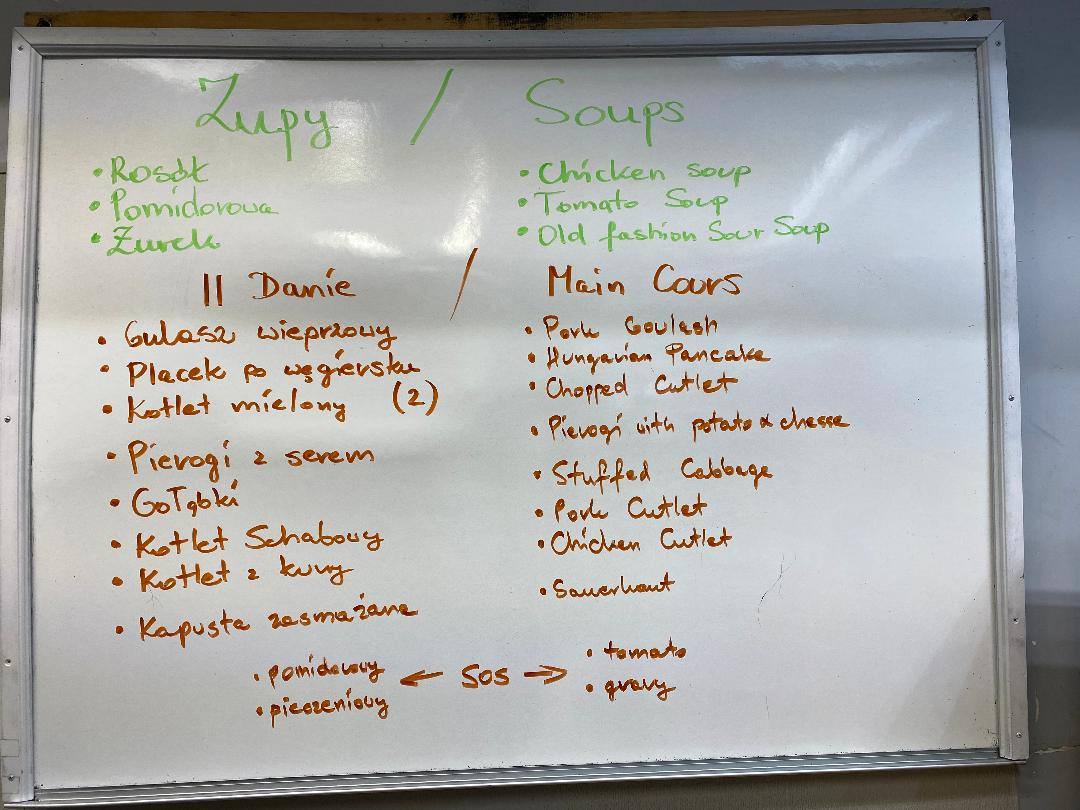 Zupy / Soups
• Rosół • Chicken soup
• Pomidorowa • Tomato Soup
• Żurek • Old fashion Sour Soup
II Danie / Main Cours
• Gulasz wieprzowy • Pork Goulash
• Placek po węgiersku • Hungarian Pancake
• Kotlet mielony (2) • Chopped Cutlet
• Pierogi z serem • Pierogi with potato & chesse
• Gołąbki • Stuffed Cabbage
• Kotlet Schabowy • Pork Cutlet
• Kotlet z kury • Chicken Cutlet
• Kapusta zasmażana • Sauerkaut
• pomidorowy ← SOS → • tomato
• pieczeniowy • gravy